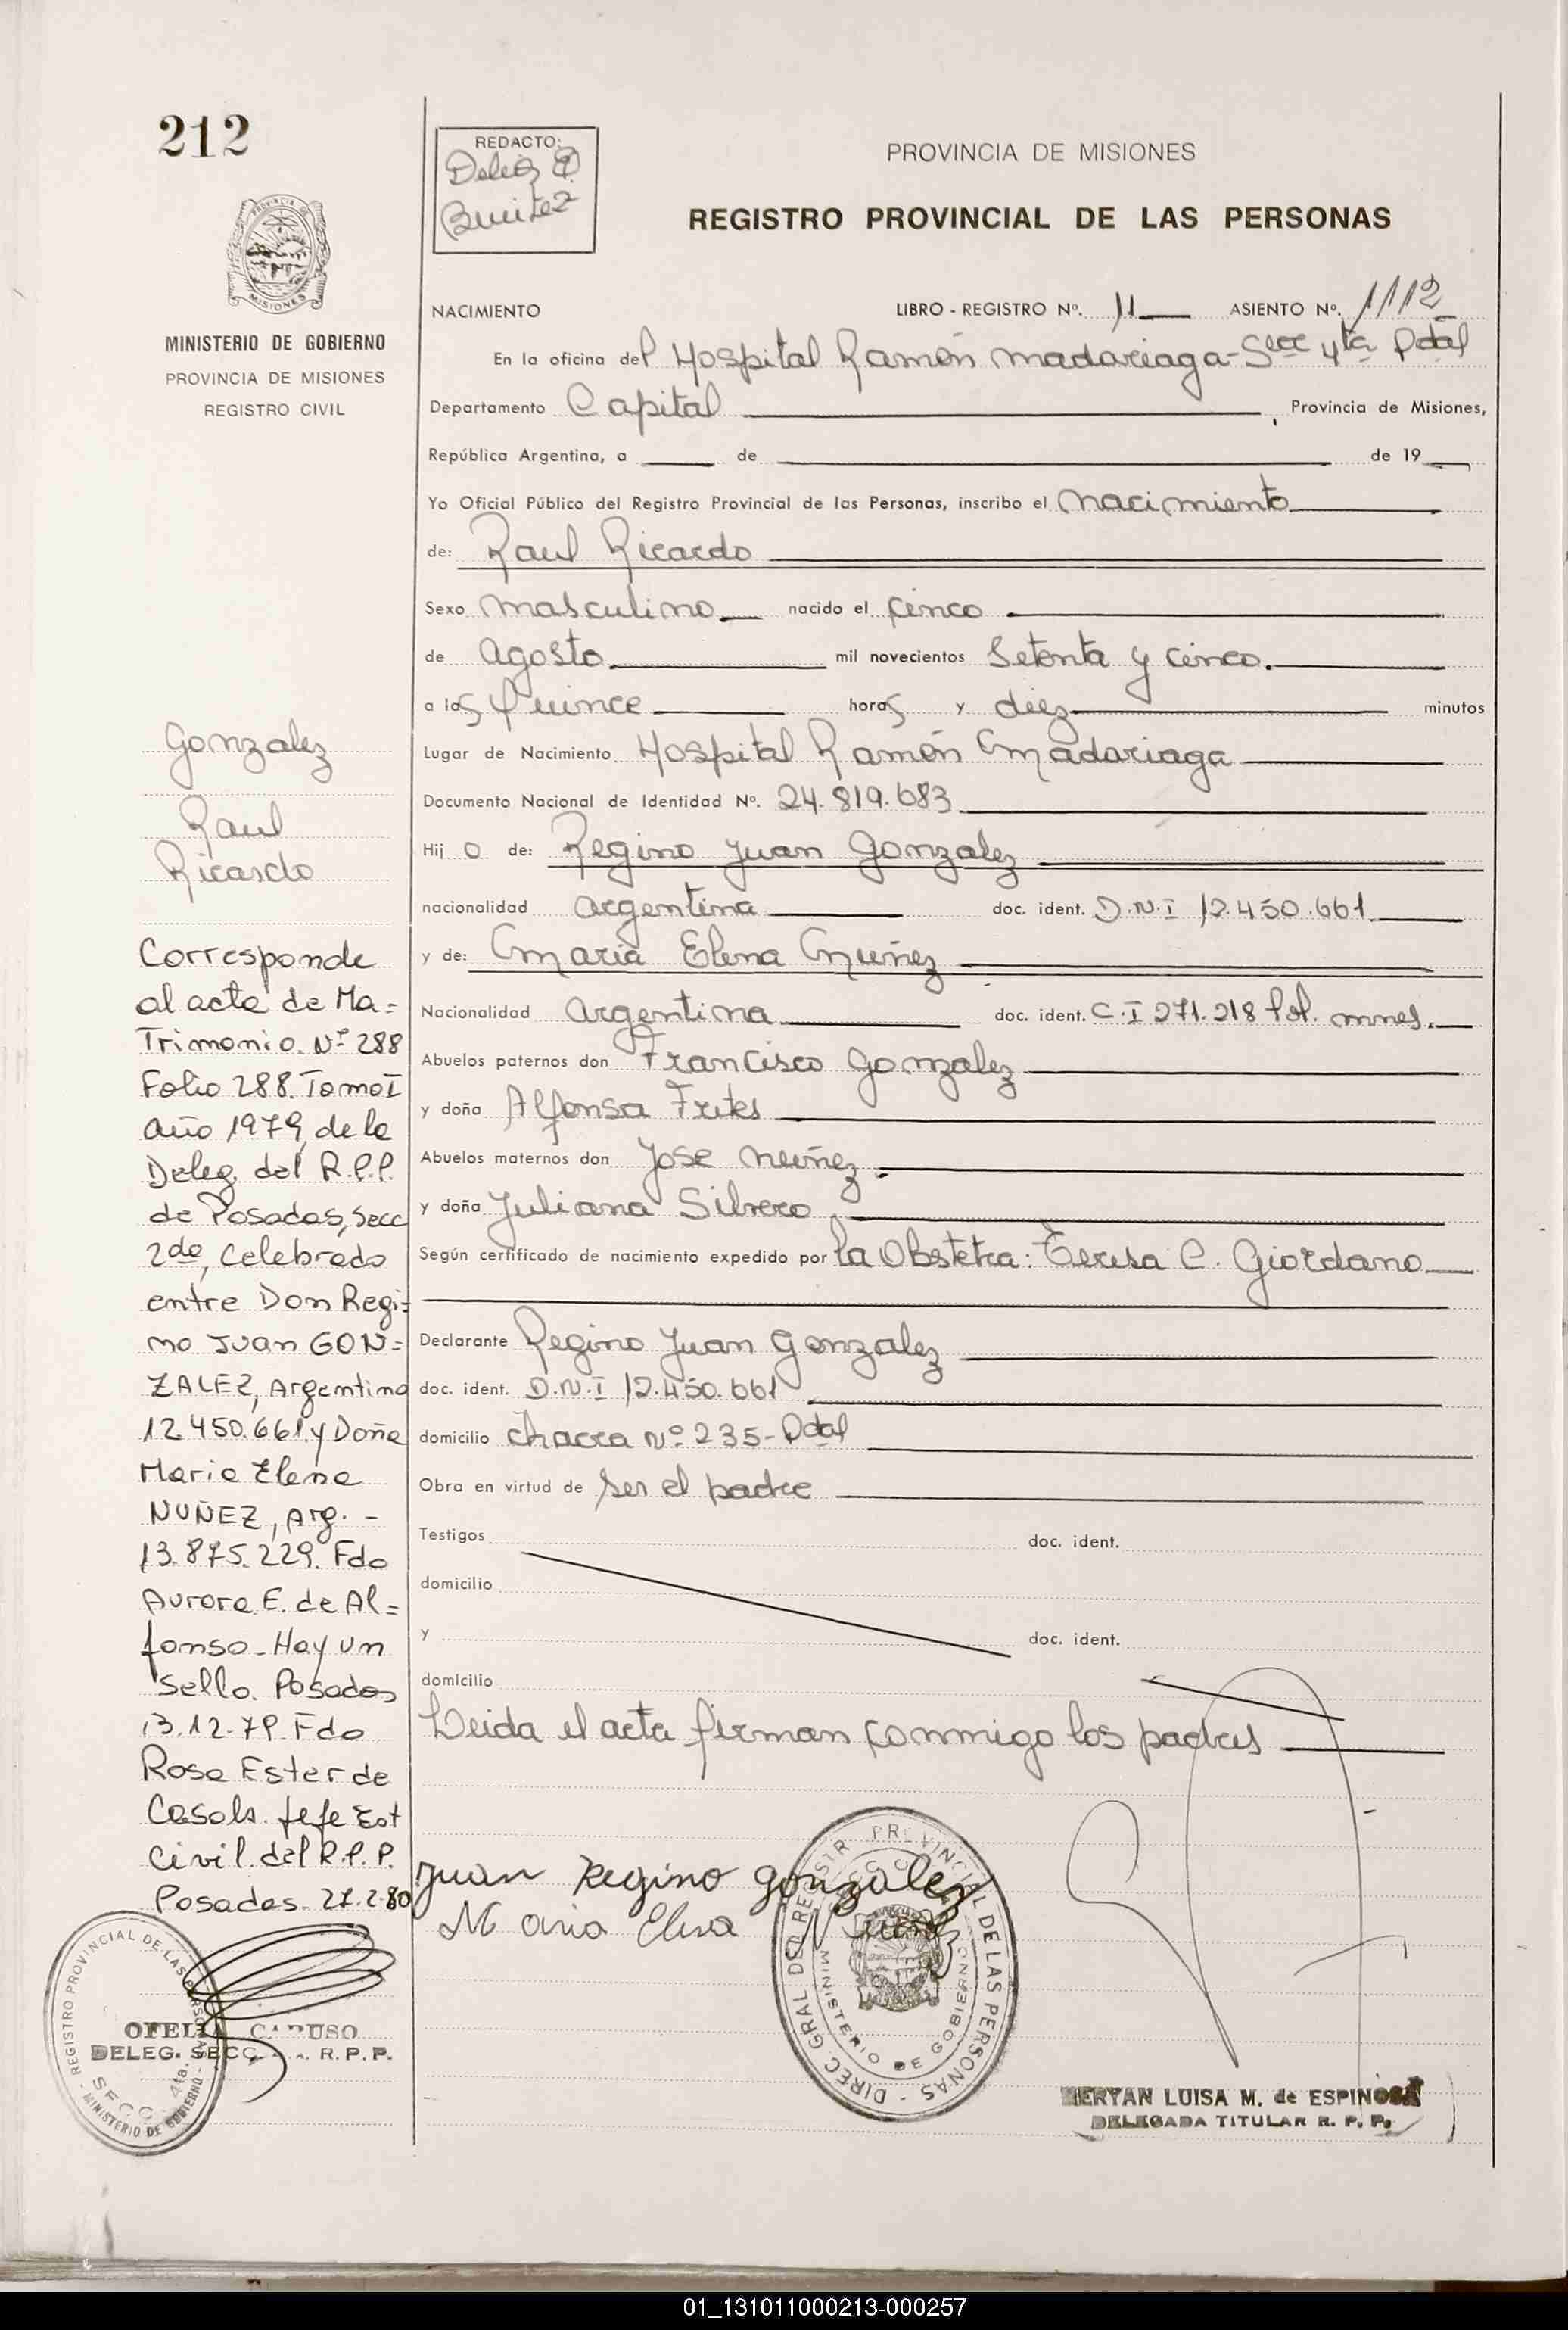 212
REDACTO:
Delia
Benitez
PROVINCIA DE MISIONES
REGISTRO PROVINCIAL DE LAS PERSONAS
MISIONES
MINISTERIO DE GOBIERNO
PROVINCIA DE MISIONES
REGISTRO CIVIL
NACIMIENTO LIBRO - REGISTRO Nº. 11 ASIENTO Nº. 1112
En la oficina del Hospital Ramón Madariaga - Secc 4ta Pdas
Departamento Capital, Provincia de Misiones,
República Argentina, a de de 19
Yo Oficial Público del Registro Provincial de las Personas, inscribo el Nacimiento
de: Raul Ricardo
Sexo masculino nacido el cinco
de Agosto mil novecientos Setenta y cinco.
a las quince horas y diez minutos
Lugar de Nacimiento Hospital Ramón Madariaga
Documento Nacional de Identidad Nº. 24.819.683
Hijo de: Regino Juan Gonzalez
nacionalidad argentina doc. ident. D.N.I 12.450.661
y de: Maria Elena Nuñez
Nacionalidad Argentina doc. ident. C.I 271.218 Pol. mnes.
Abuelos paternos don Francisco Gonzalez
y doña Alfonsa Fretes
Abuelos maternos don Jose Nuñez
y doña Juliana Silvero
Según certificado de nacimiento expedido por la Obstetra: Teresa C. Giordano
Declarante Regino Juan Gonzalez
doc. ident. D.N.I 12.450.661
domicilio chacra Nº 235 - Pdas
Obra en virtud de ser el padre
Testigos doc. ident.
domicilio
y doc. ident.
domicilio
Leida el acta firman conmigo los padres
Juan Regino gonzalez
Maria Elena Nuñez
DIREC GRAL DEL REGISTR PROVINCIAL DE LAS PERSONAS
MINISTERIO DE GOBIERNO
MERYAN LUISA M. de ESPINOSA
DELEGADA TITULAR R. P. P.
Gonzalez
Raul
Ricardo
Corresponde
al acta de Ma=
Trimonio. Nº 288
Folio 288. Tomo I
año 1979, de la
Deleg. del R.P.P.
de Posadas, Secc
2da, Celebrado
entre Don Regi=
no Juan GON=
ZALEZ, Argentino
12.450.661 y Doña
Maria Elena
NUÑEZ, Arg. -
13.875.229. Fdo
Aurora E. de Al=
fonso - Hay un
Sello. Posadas
13.12.79. Fdo
Rosa Ester de
Casols. Jefe Est
Civil del R.P.P.
Posadas. 27.2.80
REGISTRO PROVINCIAL DE LAS PERSONAS
SECC. 4ta.
MINISTERIO DE GOBIERNO
OFELIA CARUSO
DELEG. SECC R. P. P.
01_131011000213-000257